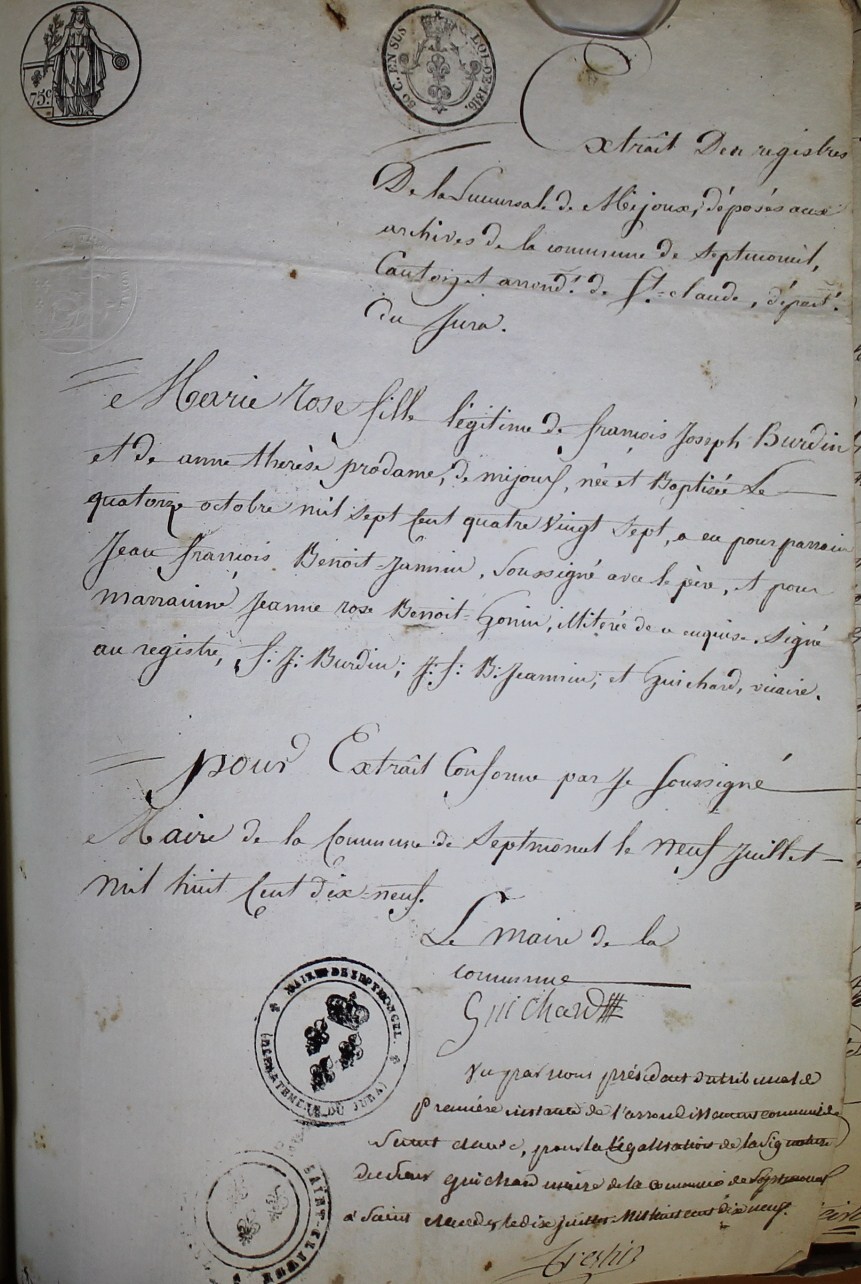 75c
50 C. EN SUS LOI DE 1816.
Extrait Des registres
De la Succursale de Mijoux, déposés aux
archives de la commune de Septmoncel,
Canton et arrond.t de St. claude, départ.t
du Jura.
Marie rose fille légitime de françois Joseph Burdin
et de anne thérèse prodame, de mijoux, née et Baptisée Le
quatorze octobre mil sept Cent quatre Vingt Sept, a eu pour parrain
Jean françois Benoit-Jannin, Soussigné avec le père, et pour
marraine Jeanne rose Benoit-Gonin, illiterée de ce enquise. Signé
au registre, f: J: Burdin; J: f: B: Jeannin; et Guichard, vicaire.
pour Extrait Conforme par Je Soussigné
Maire de la Commune de Septmoncel le neuf Juillet
mil huit Cent dix-neuf.
Le maire de la
commune
Guichard
MAIRIE DE SEPTMONCEL.
(DEPARTEMENT DU JURA)
Vu par nous président du tribunal de
Première instance de l'arrondissement communal de
Saint claude, pour la Légalisation de la Signature
du Sieur guichard maire de la commune de Septmoncel
à Saint claude le dix juillet mil huit cent dix neuf.
SAINT-CLAUDE